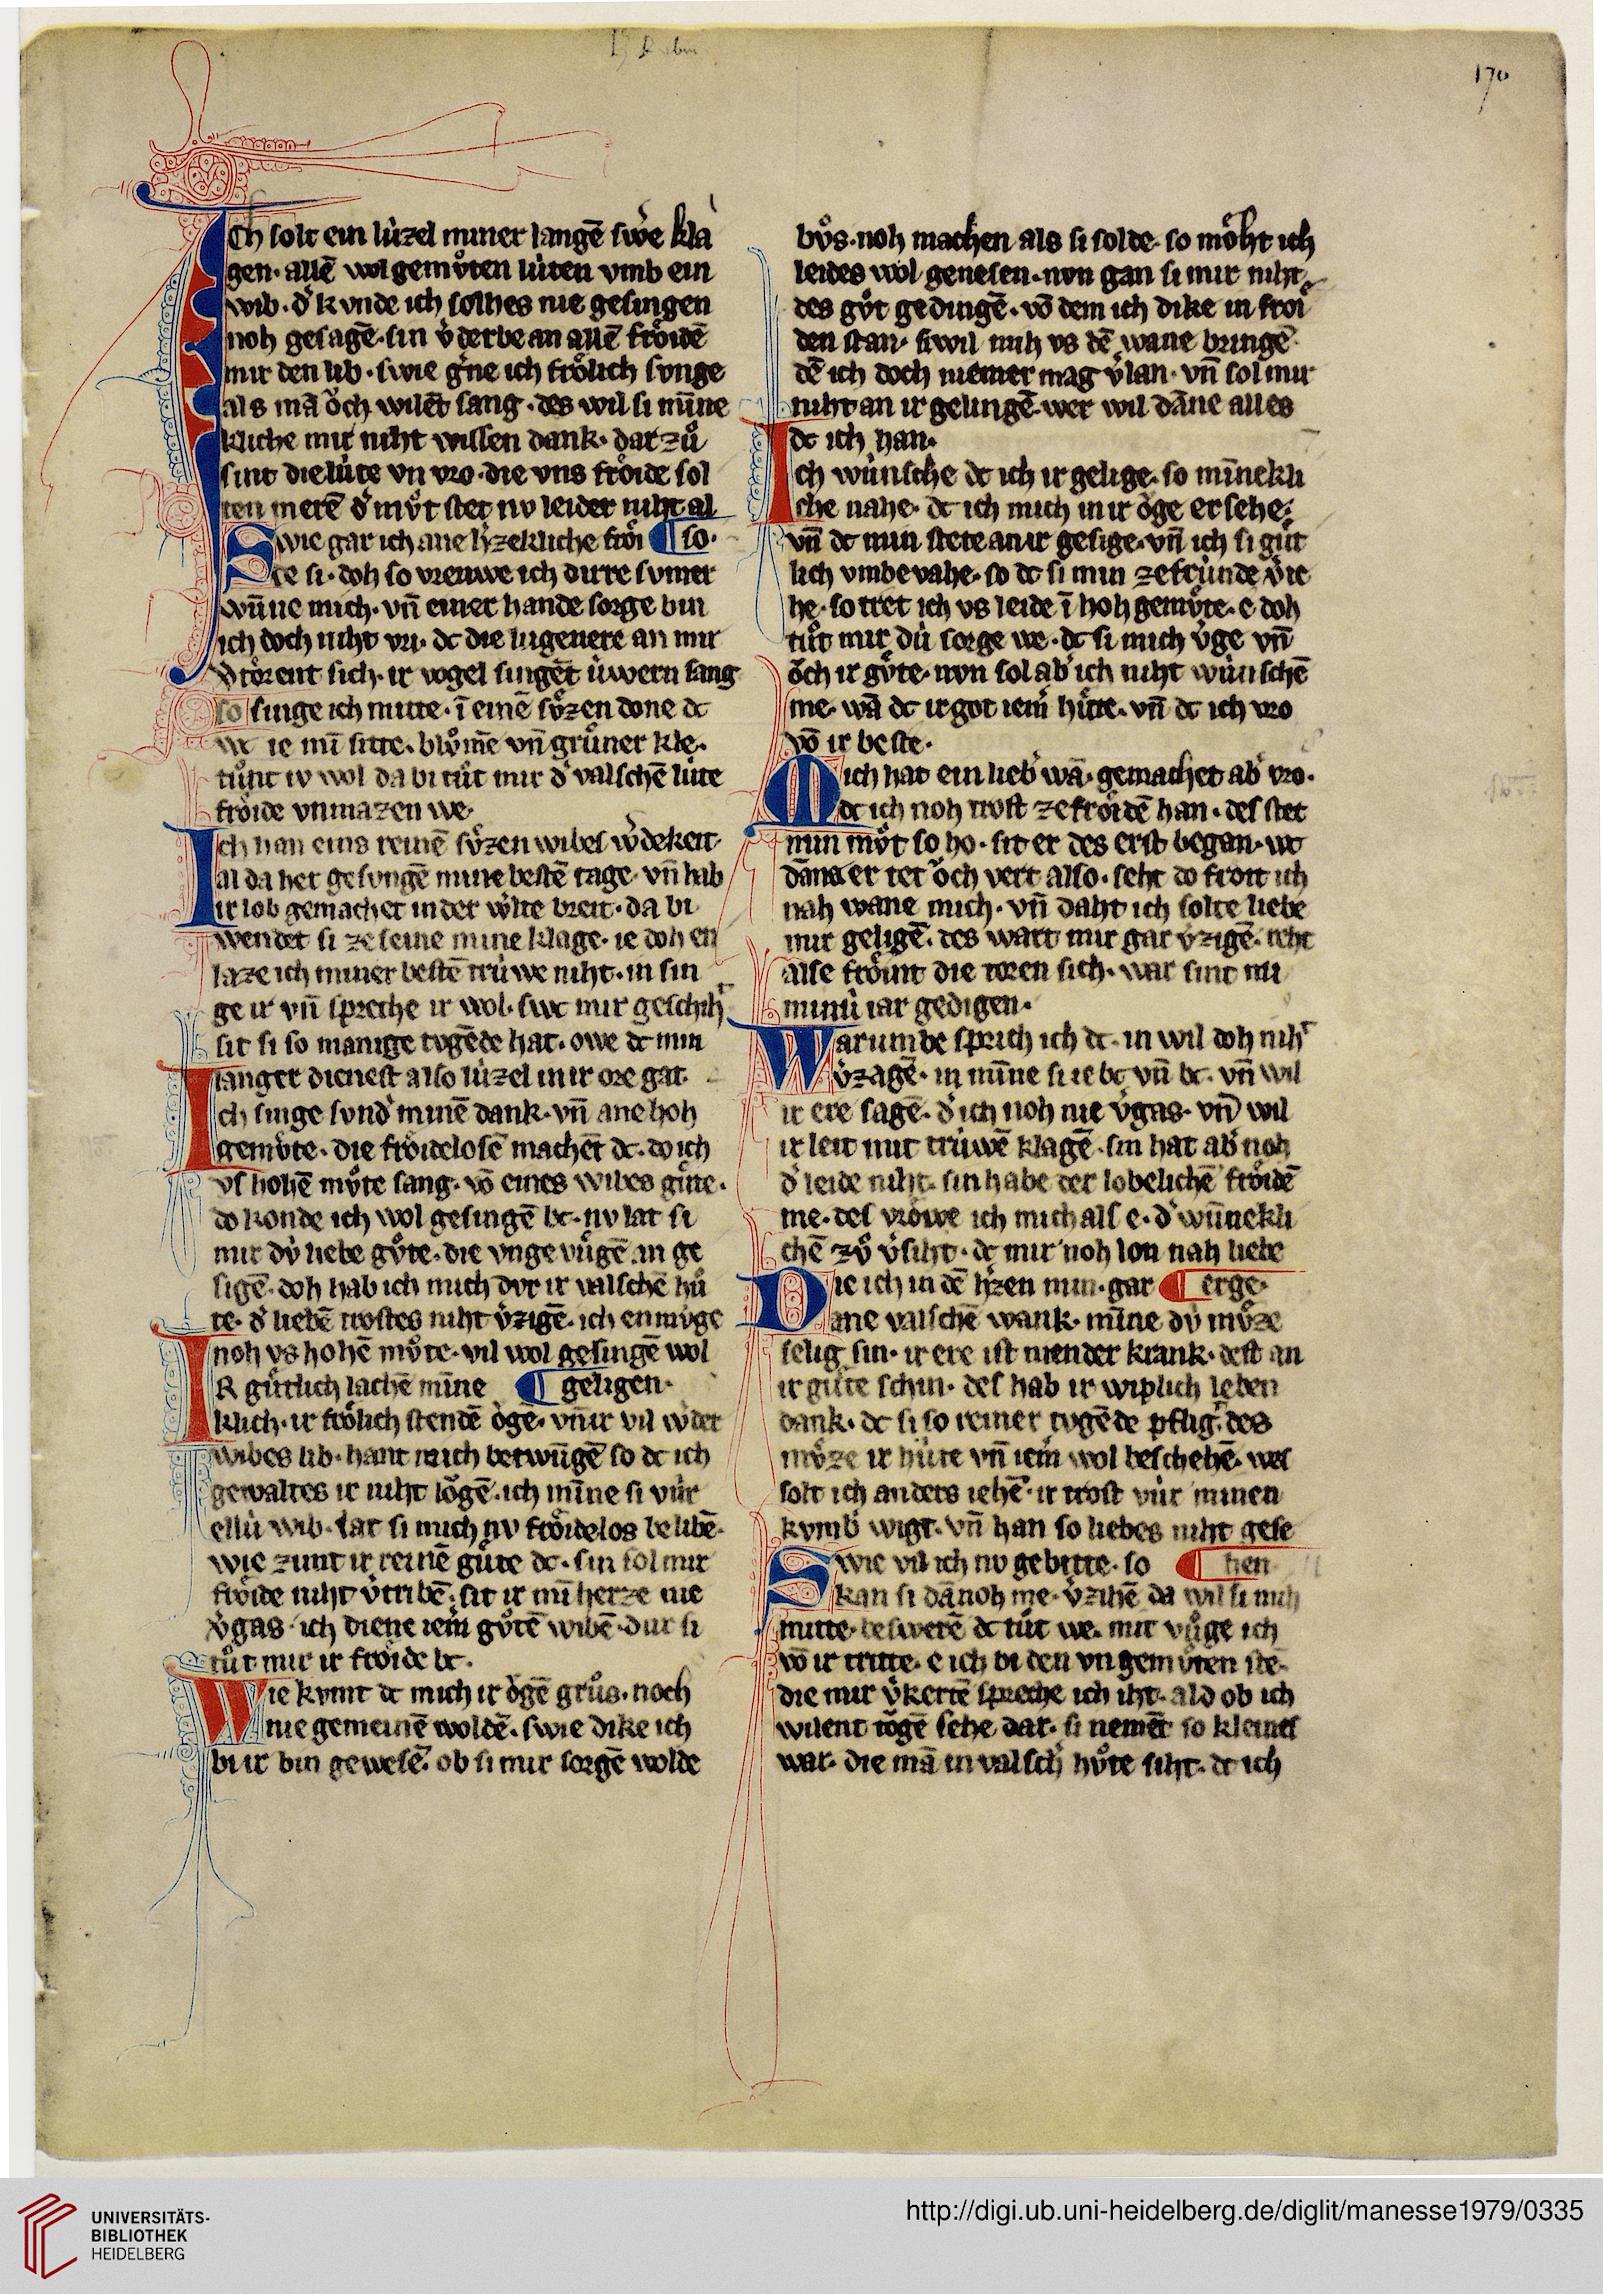 170
Ich solt ein lúzel miner langē sw̄e kla
gen. allē wol gemůten lúten vmb ein
wib. d᾽ kvnde ich solhes nie gesingen
noh gesagē. sin v᾽derbe an allē frôidē
mir den lib. swie g᾽ne ich frôlich svnge
als mā ôch wilēt sang. des wil si mīne
kliche mir niht wissen dank. dar zů
sint die lúte vn vro. die vns frôide sol
ten merē d᾽ můt stet nv leider niht al
Swie gar ich ane h᾽zekliche frôi ¶ so.
te si. doh so vreuwe ich dirre svmer
wūne mich. vn̄ einer hande sorge bin
ich doch niht vri. dc die lugenere an mir
v᾽tôrent sich. ir vogel singēt úwern sang
so singe ich mitte. ī einē sůzen done dc
wc ie mī sitte. blůmē vn̄ grůner kle.
tůnt iv wol da bi tůt mir d᾽ valschē lúte
frôide vnmazen we.
Ich han eins reinē sůzen wibes w᾽dekeit.
al da her gesvngē mine bestē tage. vn̄ hab
ir lob gemachet in der w᾽lte breit. da bi
wendet si ze seine mine klage. ie doh en
laze ich miner bestē trúwe niht. in sin
ge ir vn̄ spreche ir wol. swc mir geschiht
sit si so manige tvgēde hat. owe dc min
langer dienest also lúzel in ir ore gat.
Ich singe svnd᾽ minē dank. vn̄ ane hoh
gemůte. die frôidelosē machēt dc. do ich
vs hohē můte sang. vō eines wibes gůte.
do konde ich wol gesingē bc. nv lat si
mir dú liebe gůte. die vngevůgē an ge
sigē. doh hab ich mich dvr ir valschē hů
te. d᾽ liebē trostes niht v᾽zigē. ich en mvge
noh vs hohē můte. vil wol gesingē wol
IR gůtlich lachē mīne ¶ geligen.
klich. ir frôlich stendē ôge. vn̄ ir vil w᾽der
wibes lib. hant mich betwūgē so dc ich
gewaltes ir niht lôgē. ich mīne si vúr
ellú wib. lat si mich nv frôidelos belibē.
wie zimt ir reinē gůte dc. sin sol mir
frôide niht v᾽tribē. sit ir mī herze nie
v᾽gas. ich diene iem᾽ gůtē wibē. dur si
tůt mir ir frôide bc.
Wie kvmt dc mich ir ôgē grůs. noch
nie gemeinē woldē. swie dike ich
bi ir bin gewesē. ob si mir sorgē wolde
bůs. noh machen als si solde. so môht ich
leides wol genesen. nvn gan si mir niht
des gůt gedingē. vō dem ich dike in frôi
den stan. si wil mih vs dē wane bringē.
dē ich doch niemer mag v᾽lan. vn̄ sol mir
niht an ir gelingē. wer wil dāne alles
dc ich han.
Ich wúnsche dc ich ir gelige. so mīnekli
che nahe. dc ich mich in ir ôge ersehe.
vn̄ dc min stete an ir gesige. vn̄ ich si gůt
lich vmbevahe. so dc si min ze frúnde v᾽ie
he. so tret ich vs leide ī hoh gemůte. e doh
tůt mir dú sorge we. dc si mich v᾽ge vn̄
ôch ir gůte. nvn sol ab᾽ ich niht wúnschē
me. wā dc ir got iem᾽ hůte. vn̄ dc ich vro
vō ir beste.
Mich hat ein lieb᾽ wā. gemachet ab᾽ vro.
dc ich noh trost ze frôidē han. des stet
min můt so ho. sit er des erst began. wc
dāna er tet ôch vert also. seht do frôit ich
nah wane mich. vn̄ daht ich solte liebe
mir geligē. des wart mir gar v᾽zigē. reht
alse frôint die toren sich. war sint mi
minú iar gedigen.
Warumbe sprich ich dc. in wil doh niht
v᾽zagē. in mīne si ie bc vn̄ bc. vn̄ wil
ir ere sagē. d᾽ ich noh nie v᾽gas. vn̄ wil
ir leit mit trúwē klagē. sin hat ab᾽ noh
d᾽ leide niht. sin habe der lobelichē frôidē
me. des vrôwe ich mich als e. d᾽ wūnekli
chē zů v᾽siht. dc mir noh lon nah liebe
Die ich in dē h᾽zen min. gar ¶ erge.
ane valschē wank. mīne dú můze
selig sin. ir ere ist niender krank. dest an
ir gůte schin. des hab ir wiplich leben
dank. dc si so reiner tvgēde pflig. des
můze ir húte vn̄ iem᾽ wol beschehē. wes
solt ich anders iehē. ir trost vúr minen
kvmb᾽ wigt. vn̄ han so liebes niht gese
Swie vil ich nv gebitte. so ¶ hen
kan si dānoh me. v᾽zihē da wil si mih
mitte. beswerē dc tůt we. mit vůge ich
vō ir tritte. e ich bi den vngemůten ste.
die mir v᾽kertē spreche ich iht. ald ob ich
wilent tôgē sehe dar. si nemēt so kleines
war. die mā in valsch᾽ hůte siht. dc ich
UNIVERSITÄTS-
BIBLIOTHEK
HEIDELBERG
http://digi.ub.uni-heidelberg.de/diglit/manesse1979/0335